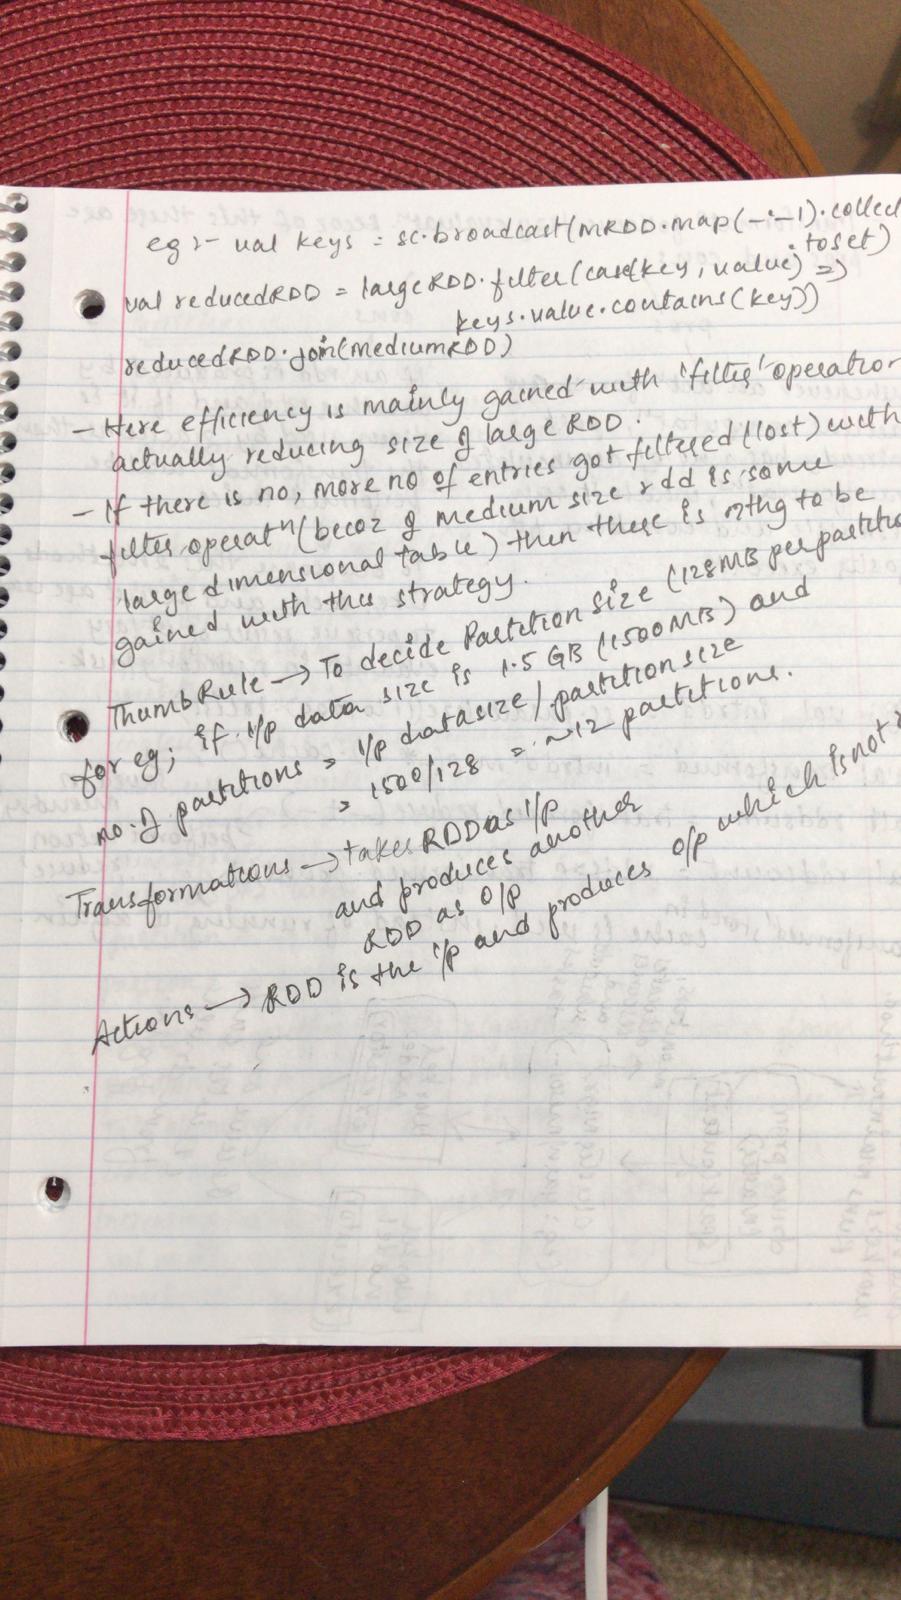 eg :- val keys = sc.broadcast(mRDD.map(_._1).collect
.toset)
val reducedRDD = largeRDD.filter(case(key, value) =>
keys.value.contains(key))
reducedRDD.join(mediumRDD)
- Here efficiency is mainly gained with 'filter' operation
actually reducing size of large RDD.
- If there is no, more no of entries got filtered (lost) with
filter operatn (becoz of medium size rdd is some
large dimensional table) then there is nthg to be
gained with this strategy.
ThumbRule → To decide Partition size (128MB per partition
for eg; if i/p data size is 1.5 GB (1500MB) and
no. of partitions = i/p datasize/partition size
= 1500/128 = ~12 partitions.
Transformations → takes RDD as i/p
and produces another
RDD as o/p
Actions → RDD is the i/p and produces o/p which is not